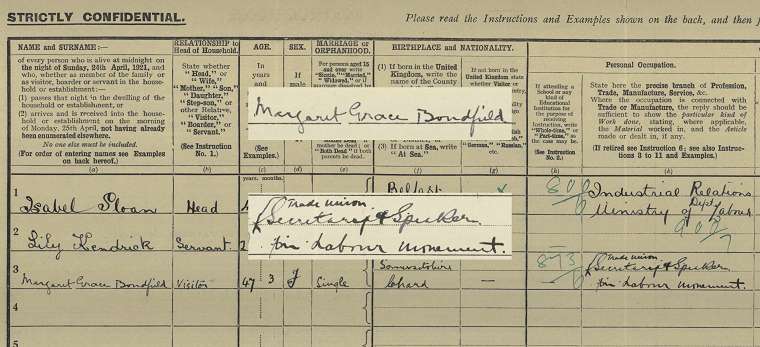 STRICTLY CONFIDENTIAL.
Please read the Instructions and Examples shown on the back, and then
NAME and SURNAME:—
of every person who is alive at midnight on
the night of Sunday, 24th April, 1921, and
who, whether as member of the family or
as visitor, boarder or servant in the house-
hold or establishment:—
(1) passes that night in the dwelling of the
household or establishment, or
(2) arrives and is received into the house-
hold or establishment on the morning
of Monday, 25th April, not having already
been enumerated elsewhere.
No one else must be included.
(For order of entering names see Examples
on back hereof.)
(a)
RELATIONSHIP to
Head of Household.
State whether
"Head," or
"Wife,"
"Mother," "Son,"
"Daughter,"
"Step-son," or
other Relative,
"Visitor,"
"Boarder," or
"Servant."
(See Instruction
No. 1.)
(b)
AGE.
In
years
and
(See
Examples.)
(c)
years. months.
SEX.
If
male
(d)
MARRIAGE or
ORPHANHOOD.
For persons aged 15
and over write
"Single," "Married,"
"Widowed," or if
mother be dead; or
"Both Dead" if both
parents be dead.
(e)
BIRTHPLACE and NATIONALITY.
(1) If born in the United
Kingdom, write the
name of the County
(3) If born at Sea, write
"At Sea."
(f)
If not born in the
United Kingdom
state whether
"German," "Russian,"
etc.
(g)
If attending a
School or any
kind of
Educational
Institution
for the
purpose of
receiving
Instruction,
write
"Whole-time," or
"Part-time," as
the case may be.
(h)
Personal Occupation.
State here the precise branch of Profession,
Trade, Manufacture, Service, &c.
Where the occupation is connected with
Trade or Manufacture, the reply should be
sufficient to show the particular kind of
Work done, stating, where applicable,
the Material worked in, and the Article
made or dealt in, if any.
(If retired see Instruction 6; see also Instruc-
tions 3 to 11 and Examples.)
(k)
Margaret Grace Bondfield
1
Isabel Sloan Head 4
Belfast
Industrial Relations
Dept
Ministry of Labour
Trade Union
Secretary & Speaker
for Labour Movement.
2
Lily Kendrick Servant 2
3
Margaret Grace Bondfield Visitor 47 3 f Single
Somersetshire
Chard —
873
Trade Union
Secretary & Speaker
for Labour Movement.
4
5